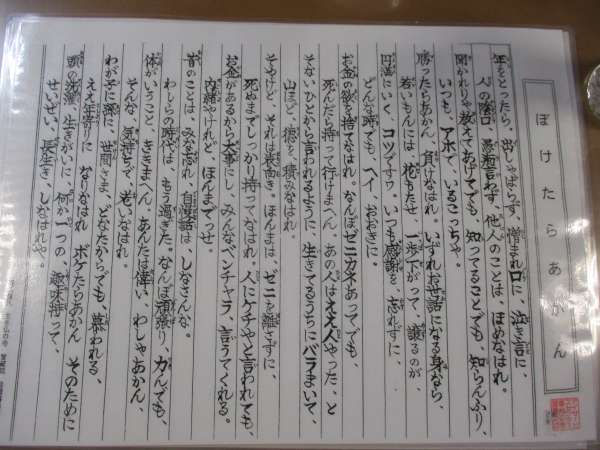 ぼけたらあかん
年をとったら、出しゃばらず、憎まれ口に、泣き言に、
人の陰口 愚痴言わず、他人のことは、ほめなはれ。
聞かれりゃ教えてあげても、知ってることでも、知らんふり、
いつも、アホで、いるこっちゃ。
勝ったらあかん 負けなはれ。いずれお世話になる身なら、
若いもんには 花もたせ、一歩下がって、譲るのが、
円満にいく、コツですわ、いつも感謝を、忘れずに、
どんな時でも、ヘイ、おおきに。
お金の欲を捨てなはれ。なんぼゼニカネあってでも、
死んだら持って行けまへん、あの人はええ人やった、と
そないひとから言われるように、生きてるうちにバラまいて、
山ほど、徳を、積みなはれ。
そやけど、それは表向き、ほんまは、ゼニを離さずに、
死ぬまでしっかり持ってなはれ。人にケチやと言われても、
お金があるから大事にし、みんなベンチャラ、言うてくれる。
内緒やけれど、ほんまでっせ。
昔のことは、みな忘れ、自慢話は しなさんな。
わしらの時代は、もう過ぎた。なんぼ頑張り、力んでも、
体がいうこと、ききまへん、あんたは偉い、わしゃあかん、
そんな気持ちで、老いなはれ。
わが子に孫に、世間さま、どなたからでも、慕われる、
ええ年寄りに なりなはれ ボケたらあかん そのために
頭の洗濯、生きがいに、何か一つの、趣味持って、
せいぜい、長生き、しなはれや。